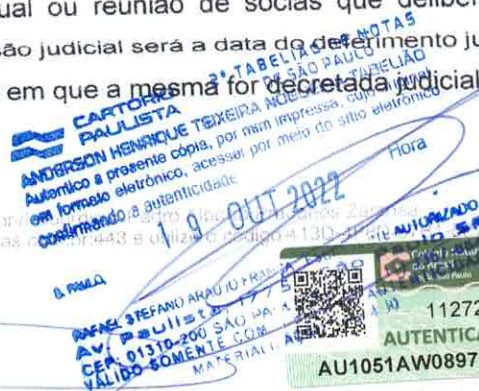 ual ou reunião de sócias que deliber
são judicial será a data do deferimento ju
em que a mesma for decretada judicial
2º TABELIÃO DE NOTAS
DE SÃO PAULO
CARTÓRIO
PAULISTA
TABELIÃO
ANDERSON HENRIQUE TEIXEIRA
Autentico a presente cópia, por mim impressa, cujo
em formato eletrônico, acessei por meio do sítio eletrônico
confirmando a autenticidade
Hora
19 OUT 2022
443 e utilize o código 413D
AUTORIZADO
S. PAULO
RAFAEL STEFANO ARAUJO FRANÇA
Av. Paulista, 1
CEP. 01310-200 SÃO PA
VÁLIDO SOMENTE COM
MATERIAL
11272
AUTENTICA
AU1051AW0897